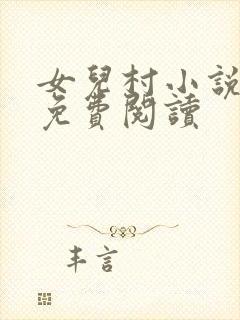 女兒村小說
免費閱讀
丰言